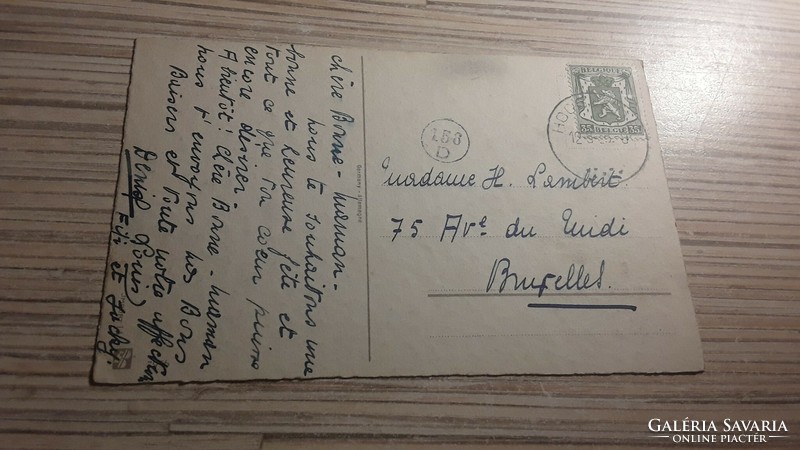 chère Bonne-Maman-
nous te souhaitons une
bonne et heureuse fête et
tout ce que ton coeur puisse
encore désirer-
A bientôt! Chère Bonne-Maman
nous t'envoyons nos Bons
Baisers et toute notre affection
Louis
Fifi et Jacky.
Germany - Allemagne
158
D
BELGIQUE
35 BELGIE 35
Madame H. Lambert.
75 Ave du Midi
Bruxelles.
GALÉRIA SAVARIA
ONLINE PIACTÉR